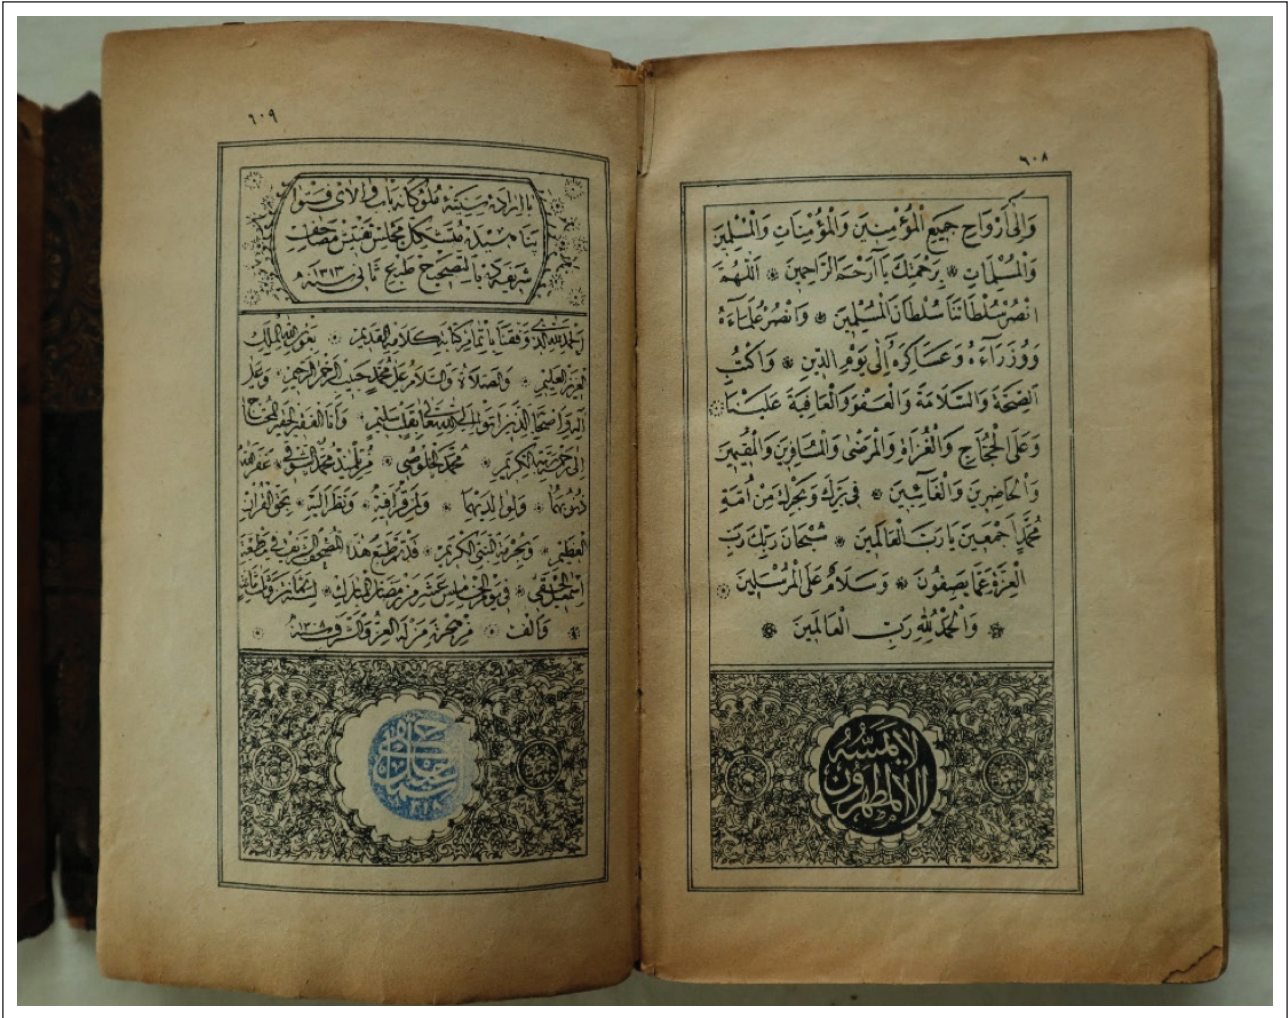 ٦٠٨
وَإِلَى أَرْوَاحِ جَمِيعِ الْمُؤْمِنِينَ وَالْمُؤْمِنَاتِ وَالْمُسْلِمِينَ
وَالْمُسْلِمَاتِ ❊ بِرَحْمَتِكَ يَا أَرْحَمَ الرَّاحِمِينَ ❊ اَللّٰهُمَّ
انْصُرْ سُلْطَانَنَا سُلْطَانَ الْمُسْلِمِينَ ❊ وَانْصُرْ عُلَمَاءَهُ
وَوُزَرَاءَهُ وَعَسَاكِرَهُ إِلٰى يَوْمِ الدِّينِ ❊ وَاكْتُبِ
الصِّحَّةَ وَالسَّلَامَةَ وَالْعَفْوَ وَالْعَافِيَةَ عَلَيْنَا ❊
وَعَلَى الْحُجَّاجِ وَالْغُزَاةِ وَالْمَرْضٰى وَالْمُسَافِرِينَ وَالْمُقِيمِينَ
وَالْحَاضِرِينَ وَالْغَائِبِينَ ❊ فِي بَرِّكَ وَبَحْرِكَ مِنْ أُمَّةِ
مُحَمَّدٍ أَجْمَعِينَ يَا رَبَّ الْعَالَمِينَ ❊ سُبْحَانَ رَبِّكَ رَبِّ
الْعِزَّةِ عَمَّا يَصِفُونَ ❊ وَسَلَامٌ عَلَى الْمُرْسَلِينَ ❊
❊ وَالْحَمْدُ لِلّٰهِ رَبِّ الْعَالَمِينَ ❊
لَا يَمَسُّهُ
إِلَّا الْمُطَهَّرُونَ
٦٠٩
با ارادهٔ سنيهٔ ملوكانه باب والاى فتوا
پناهيده متشكل مجلس تفتيش مصاحف
شريفه ده بالتصحيح طبع ثانى سنه ١٣١٣
الحمد لله الذى وفقنا بإتمام كتابة كلامه القديم ❊ بعون الله الملك
العزيز العليم ❊ والصلاة والسلام على محمد حبيب الرحمن الرحيم ❊ وعلى
آله وأصحابه الذين اتوا إلى الله تعالى بقلب سليم ❊ وأنا الفقير الحقير المحتاج
إلى رحمة ربه الكريم ❊ محمد الخلوصى ❊ من تلميذ محمد الشوقى ❊ غفر الله
ذنوبهما ❊ ولوالديهما ❊ ولمن قرأ فيه ❊ ونظر إليه ❊ بحق القرآن
العظيم ❊ وبحرمة النبى الكريم ❊ قد تم طبع هذا المصحف الشريف فى مطبعة
❊ فى يوم الخامس عشر من رمضان المبارك ❊ لسنة ثمان وثلثمائة
❊ وألف ❊ من هجرة من له العز والشرف سنه ١٣٠٨